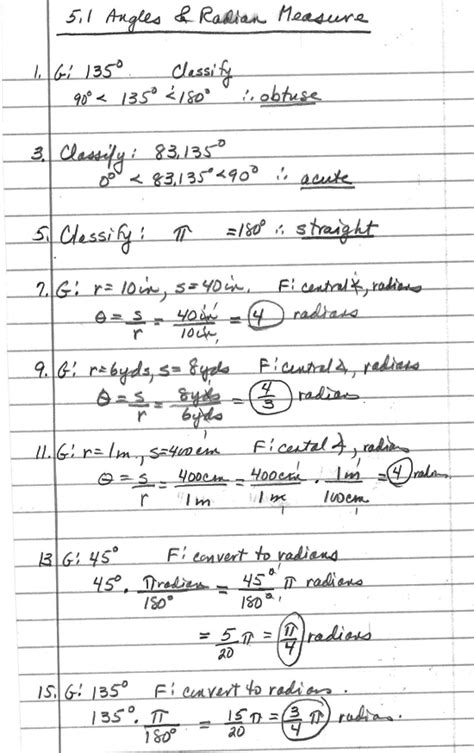 5.1 Angles & Radian Measure
1. G: 135° Classify
90° < 135° < 180° ∴ obtuse
3. Classify: 83.135°
0° < 83.135° < 90° ∴ acute
5. Classify: π = 180° ∴ straight
7. G: r = 10 in, s = 40 in. F: central ∡, radians
θ = s/r = 40 in/10 in = 4 radians
9. G: r = 6 yds, s = 8 yds F: central ∡, radians
θ = s/r = 8 yds/6 yds = 4/3 radian
11. G: r = 1m, s = 400cm F: cental ∡, radian
θ = s/r = 400cm/1m = 400cm/1m · 1m/100cm = 4 radn
13 G: 45° F: convert to radians
45° · π radian/180° = 45°/180° π radians
= 5/20 π = π/4 radians
15. G: 135° F: convert to radians.
135° · π/180° = 15/20 π = 3/4 π radian.